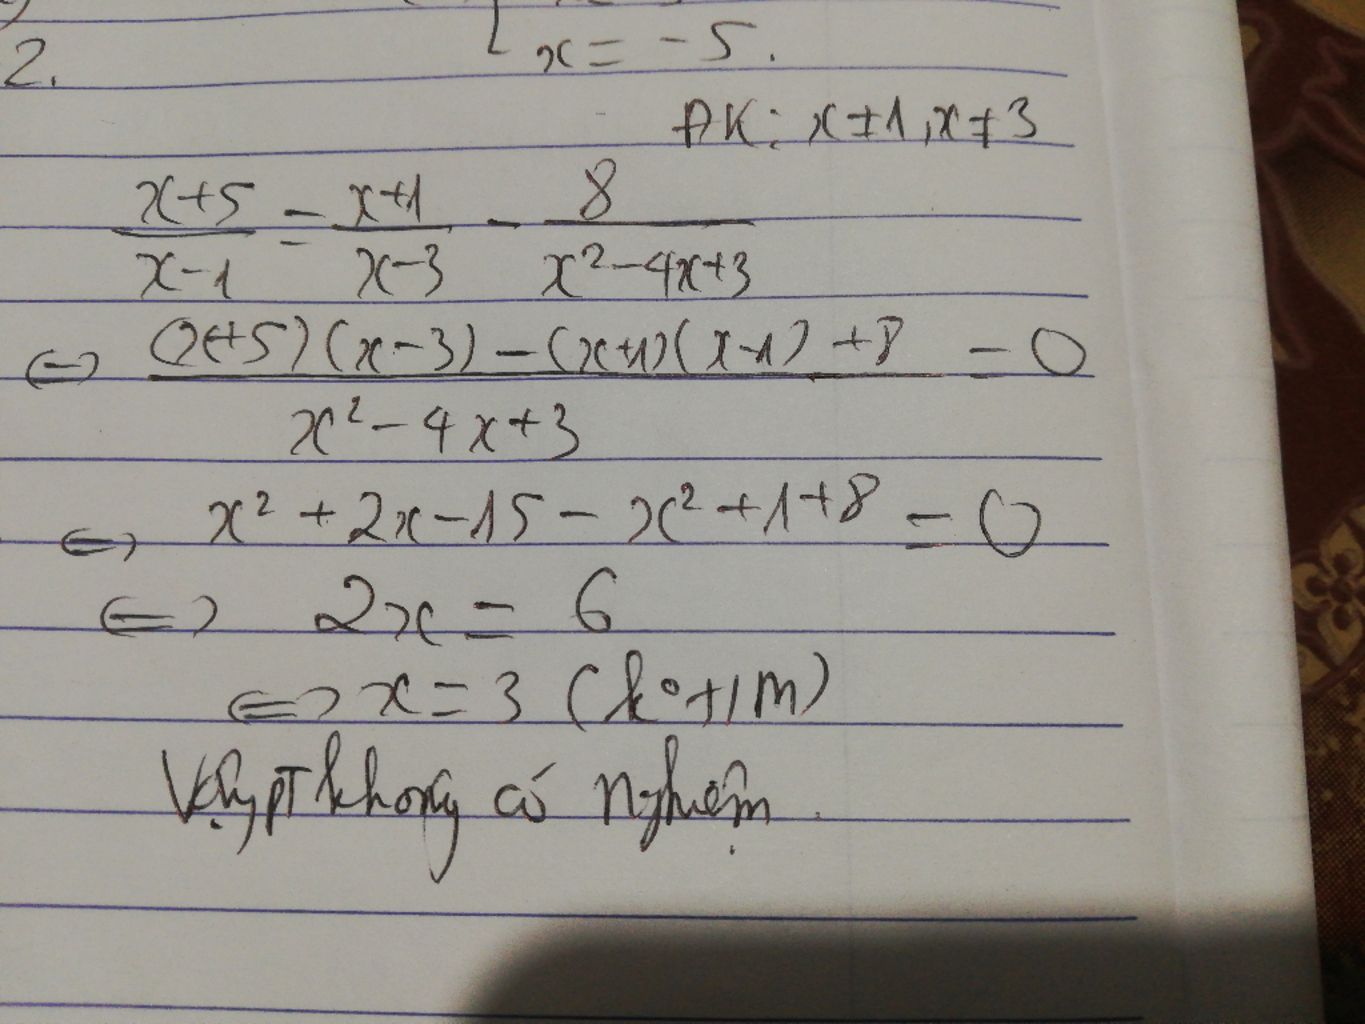 x = -5.
2.
ĐK: x ≠ 1, x ≠ 3
x+5/x-1 = x+1/x-3 - 8/x²-4x+3
⇔ (x+5)(x-3) - (x+1)(x-1) +8 / x²-4x+3 = 0
⇔ x² + 2x - 15 - x² + 1 + 8 = 0
⇔ 2x = 6
⇔ x = 3 (k° t/m)
Vậy PT không có nghiệm.